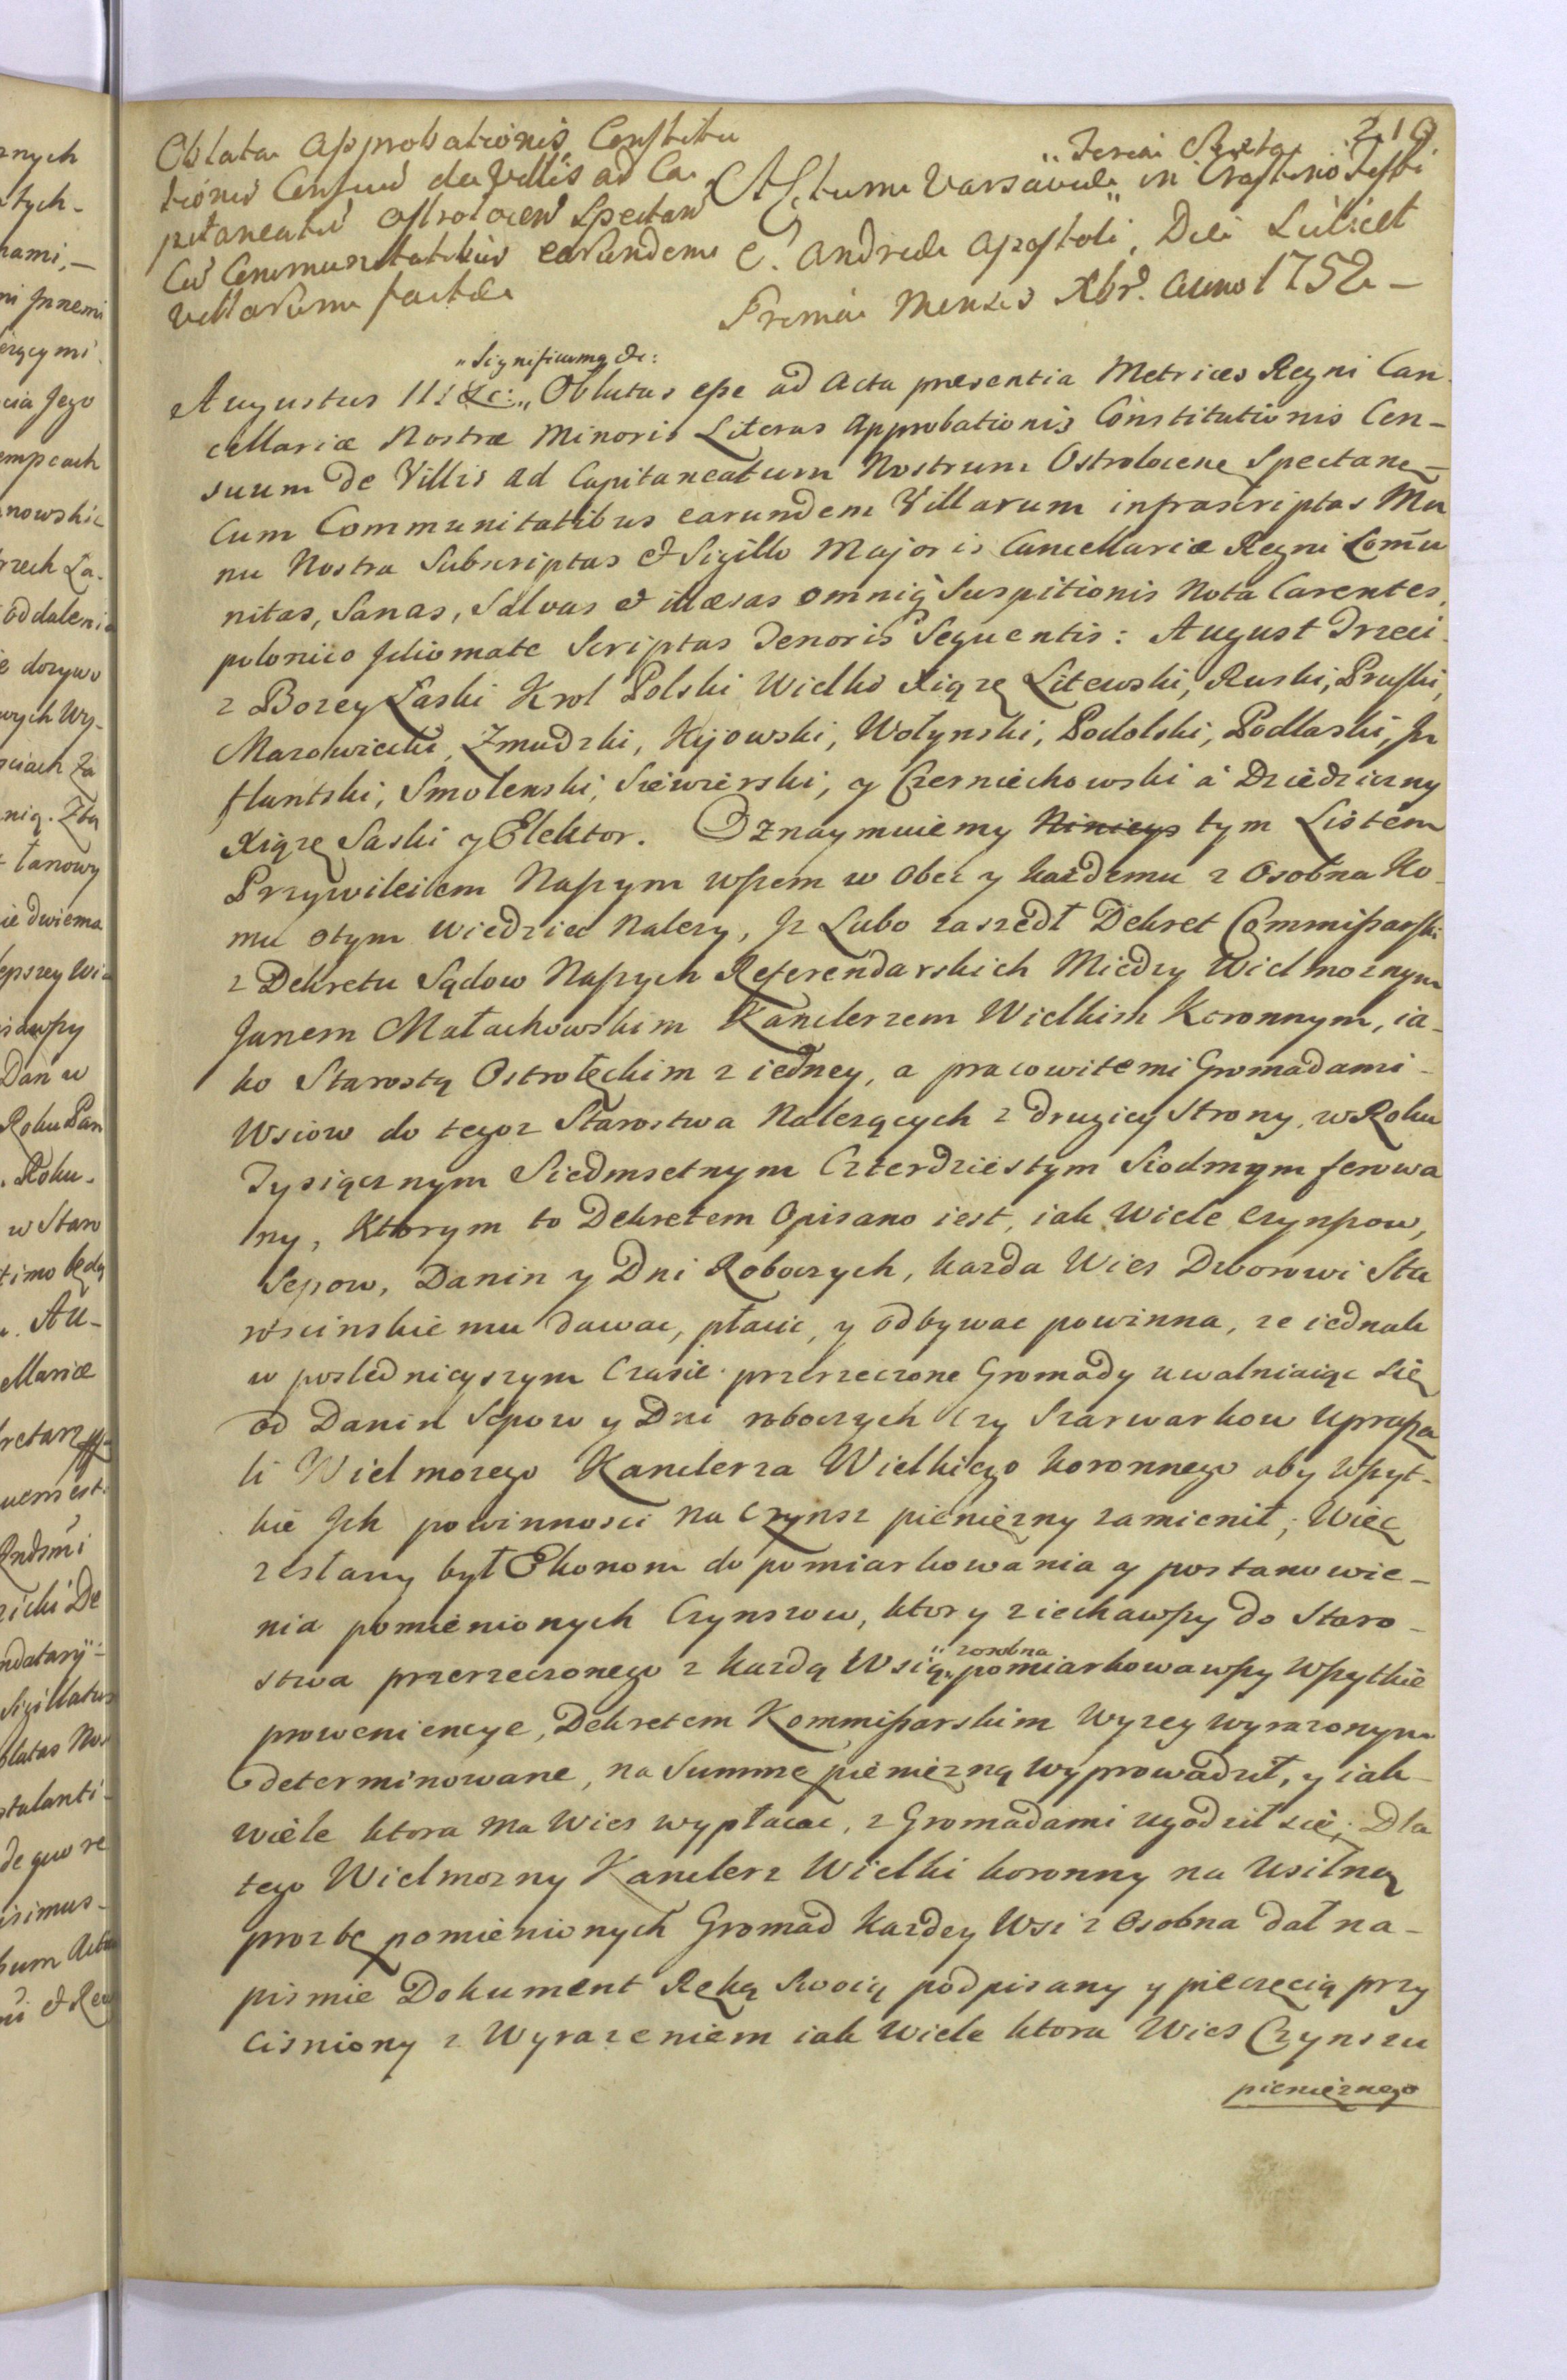 210
Oblata Approbationis Constitu
tionis Censuu de Villis ad Ca
pitaneatu Ostrolocen Spectan
Cu Communitatibus earundem
Villarum factae
„Feria Sexta
Actum Varsaviae „ in Crastino Festi
S. Andreae Apostoli, Die Scilicet
Prima Mensis Xbr. Anno 1752 –
„Significamq &c:
Augustus III &c: „ Oblatas esse ad Acta praesentia Metrices Regni Can
cellariæ Nostræ Minoris Literas Approbationis Constitutionis Cen-
suum de Villis ad Capitaneatum Nostrum Ostrolocens Spectan –
Cum Communitatibus earundem Villarum infrascriptas Ma
nu Nostra Subscriptas & Sigillo Majoris Cancellariæ Regni Com̄u
nitas, Sanas, Salvas & illæsas omniq Suspitionis Nota Carentes,
polonico Idiomate Scriptas Tenoris Sequentis: August Trzeci
z Bozey Łaski Krol Polski Wielki Xiąze Litewski, Ruski, Pruski,
Mazowiecki, Zmudzki, Kijowski, Wołynski, Podolski, Podlaski, In
flantski, Smolenski, Siewierski, y Czerniechowski á Dziedziczny
Xiąze Saski y Elektor. Oznaymuiemy Ninieys tym Listem
Przywileiem Naszym wszem w Obec y każdemu z Osobna Ko
mu otym wiedziec Nalezy, Iz Lubo zaszedł Dekret Commissarski
z Dekretu Sądow Naszych Referendarskich Miedzy Wielmoznym
Janem Małachowskim Kanclerzem Wielkim Koronnym, ia-
ko Starostą Ostrołęckim z iedney, a pracowitemi Gromadami –
Wsiow do tegoz Starostwa Nalezących z drugiey Strony, w Roku
Tysiącznym Siedmsetnym Czterdziestym Siodmym ferowa
ny, Ktorym to Dekretem Opisano iest, iak wiele Czynszow,
Sepow, Danin y Dni Roboczych, kazda Wies Dworowi Sta
roscinskiemu dawac, płacic, y odbywac powinna, ze iednak
w poslednieyszym Czasie przerzeczone Gromady uwalniaiąc się
od Danin Sepow y Dni roboczych czy Szarwarkow Uprasza
li Wielmozego Kanclerza Wielkiego koronnego aby wszyt-
kie Ich powinnosci na Czynsz pieniezny zamienił; Więc
zesłany był Ekonom do pomiarkowania y postanowie-
nia pomienionych Czynszow, ktory ziechawszy do Staro-
stwa przerzeczonego z kazdą Wsią „zosobna pomiarkowawszy wszytkie
proweniencye, Dekretem Kommissarskim wyzey wyrazonym
determinowane, na Summę pieniezną wyprowadził, y iak –
wiele ktora ma Wies wypłacac, z Gromadami ugodził się; Dla
tego Wielmozny Kanclerz Wielki koronny na Usilną
prozbę pomienionych Gromad kazdey Wsi z Osobna dał na-
pismie Dokument Ręką Swoią podpisany y pieczęcią przy
cisniony z Wyrazeniem iak wiele ktora Wies Czynszu
pienięznego